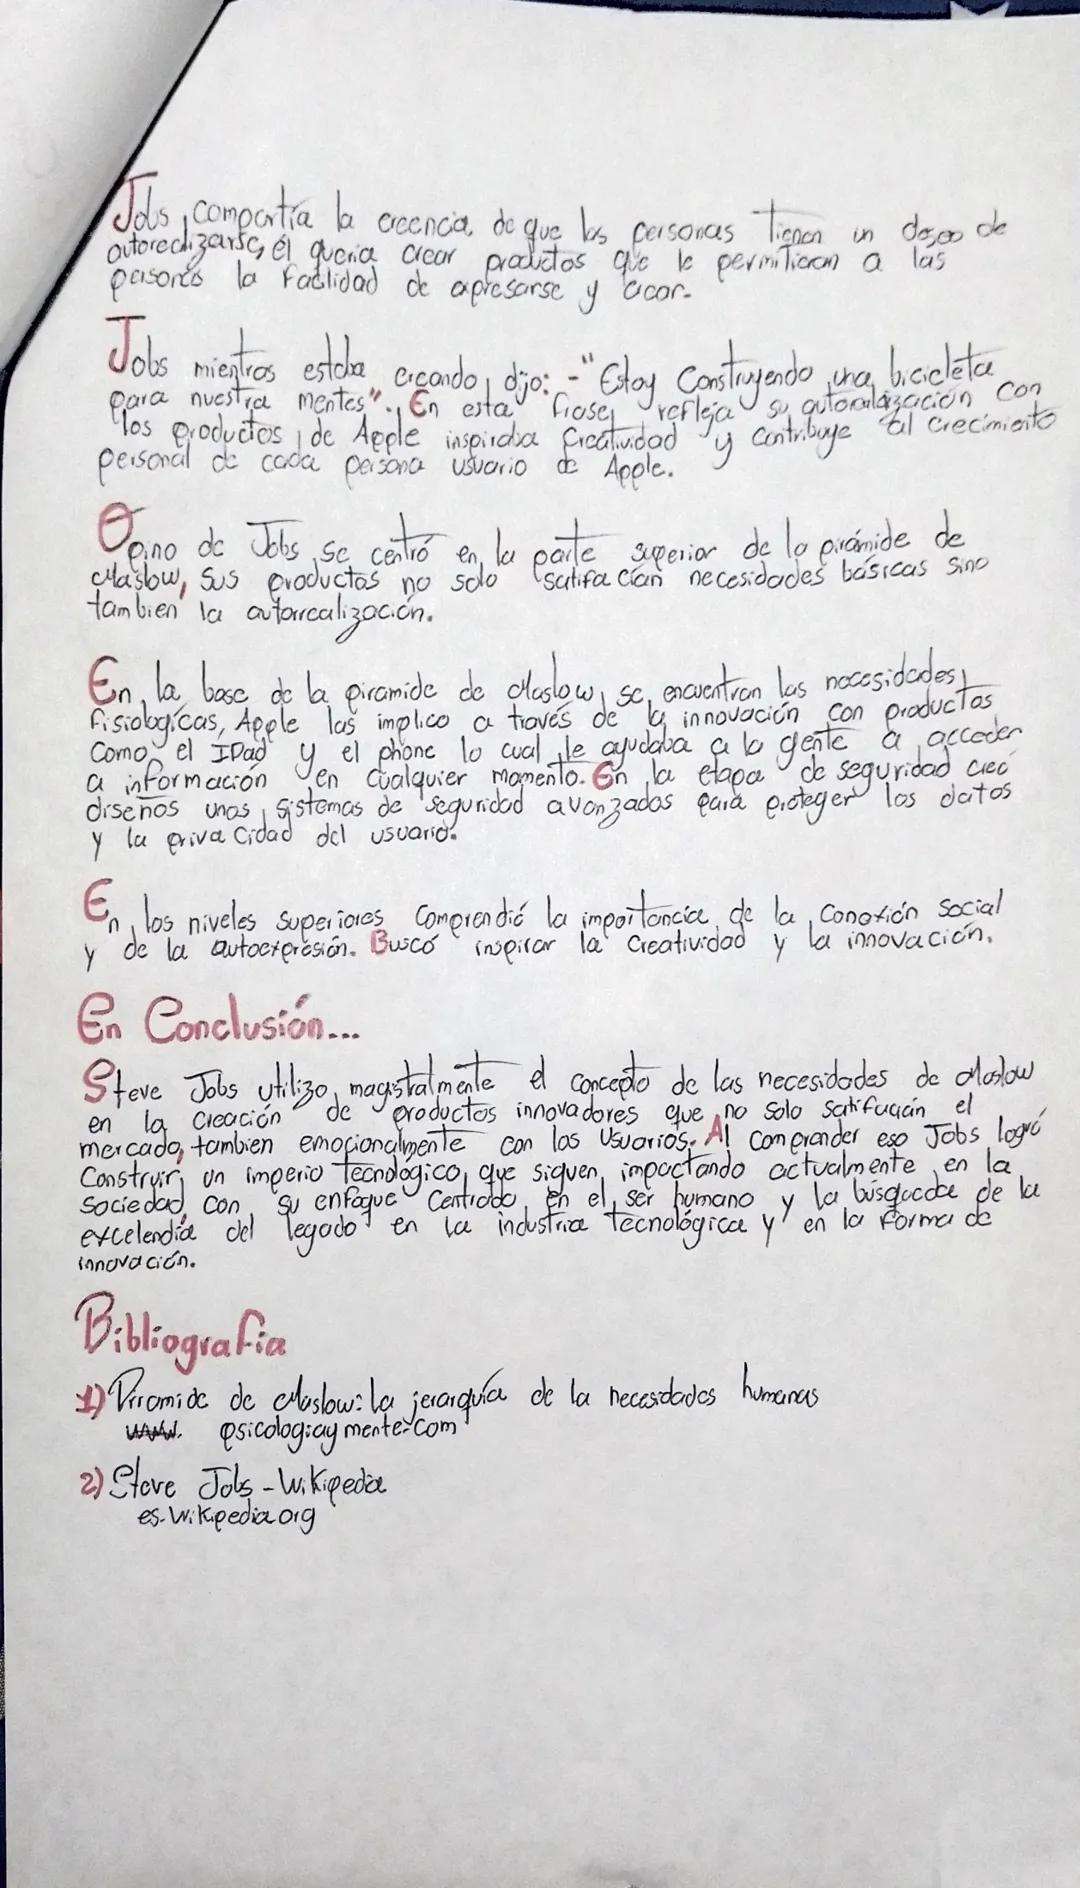 Jobs, compartía la creencia de que las personas tienen un deseo de
autorealizarse, él queria crear productos que le permitieran a las
personas la facilidad de expresarse y crear.
Jobs mientras estaba creando, dijo: -"Estoy Construyendo una bicicleta
para nuestra mentes". En esta frase, refleja su autoralización con
los productos, de Apple inspiraba Creatividad y contribuye al crecimiento
personal de cada persona usuario de Apple.
Opino de Jobs se centró en la parte superior de la pirámide de
Maslow, Sus productos no solo satifacían necesidades básicas sino
tambien la autorrealización.
En la base de la piramide de Maslow, se encuentran las necesidades
fisiologícas, Apple las implico a través de la innovación con productos
como el IPad y el phone lo cual le ayudaba a la gente a acceder
a información en cualquier momento. En la etapa de seguridad creó
diseños unos sistemas de seguridad avanzados para proteger los datos
y la privacidad del usuario.
En los niveles superiores Comprendió la importancia de la Conexión Social
y de la autoexpresión. Buscó inspirar la Creatividad y la innovación.
En Conclusión...
Steve Jobs utilizo magistralmente el concepto de las necesidades de Maslow
en la creación de productos innovadores que no solo satifugán el
mercado, tambien emocionalmente con los Usuarios. Al comprender eso Jobs logró
Construir, un imperio Tecnológico, que siguen impactando actualmente en la
Sociedad, con su enfoque Centrado En el ser humano y la búsqueda de la
excelendia del legado en la industria tecnológica y en la forma de
innovación.
Bibliografía
1) Pirramide de Maslow: la jerarquía de la necesidades humanas
www. psicologiaymente.com
2) Steve Jobs - Wikipedia
es.Wikipedia.org